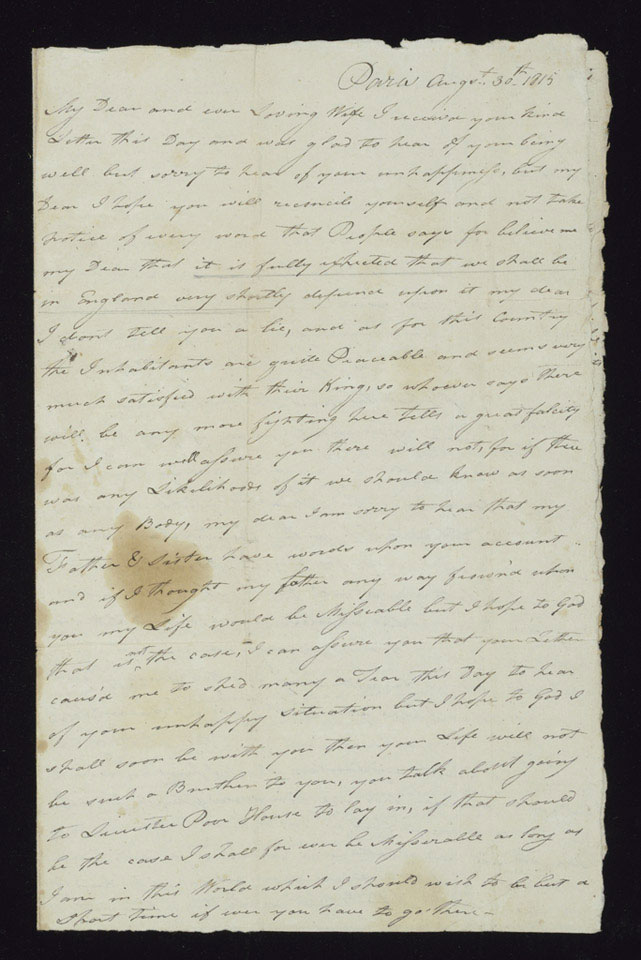 Paris Augst. 30th. 1815
My Dear and ever Loving Wife I receivd your kind
Letter this Day and was glad to hear of your being
well but sorry to hear of your unhappiness, but my
Dear I hope you will reconcile yourself and not take
notice of every word that People says for believe me
my Dear that it is fully expected that we shall be
in England very shortly depend upon it my dear
I dont tell you a lie, and as for this Country
the Inhabitants are quite Peaceable and seems very
much satisfied with their King, so whoever says there
will be any more fighting here tells a great falcity
for I can well assure you there will not, for if there
was any Likelihood of it we should know as soon
as any Body, my dear I am sorry to hear that my
Father & Sister have words upon your account
and if I thought my father any way frown'd upon
you my Life would be Misseable but I hope to God
that is not the case, I can assure you that your Letter
caus'd me to shed many a Tear this Day to hear
of your unhappy situation but I hope to God I
shall soon be with you then your Life will not
be such a Burthen to you, you talk about going
to Poor House to lay in, if that should
be the case I shall for ever be Misserable as long as
I am in this World which I should wish to be but a
Short time if ever you have to go there -